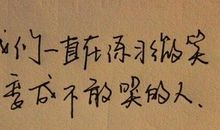 我们一直在练习微笑
变成不敢哭的人.